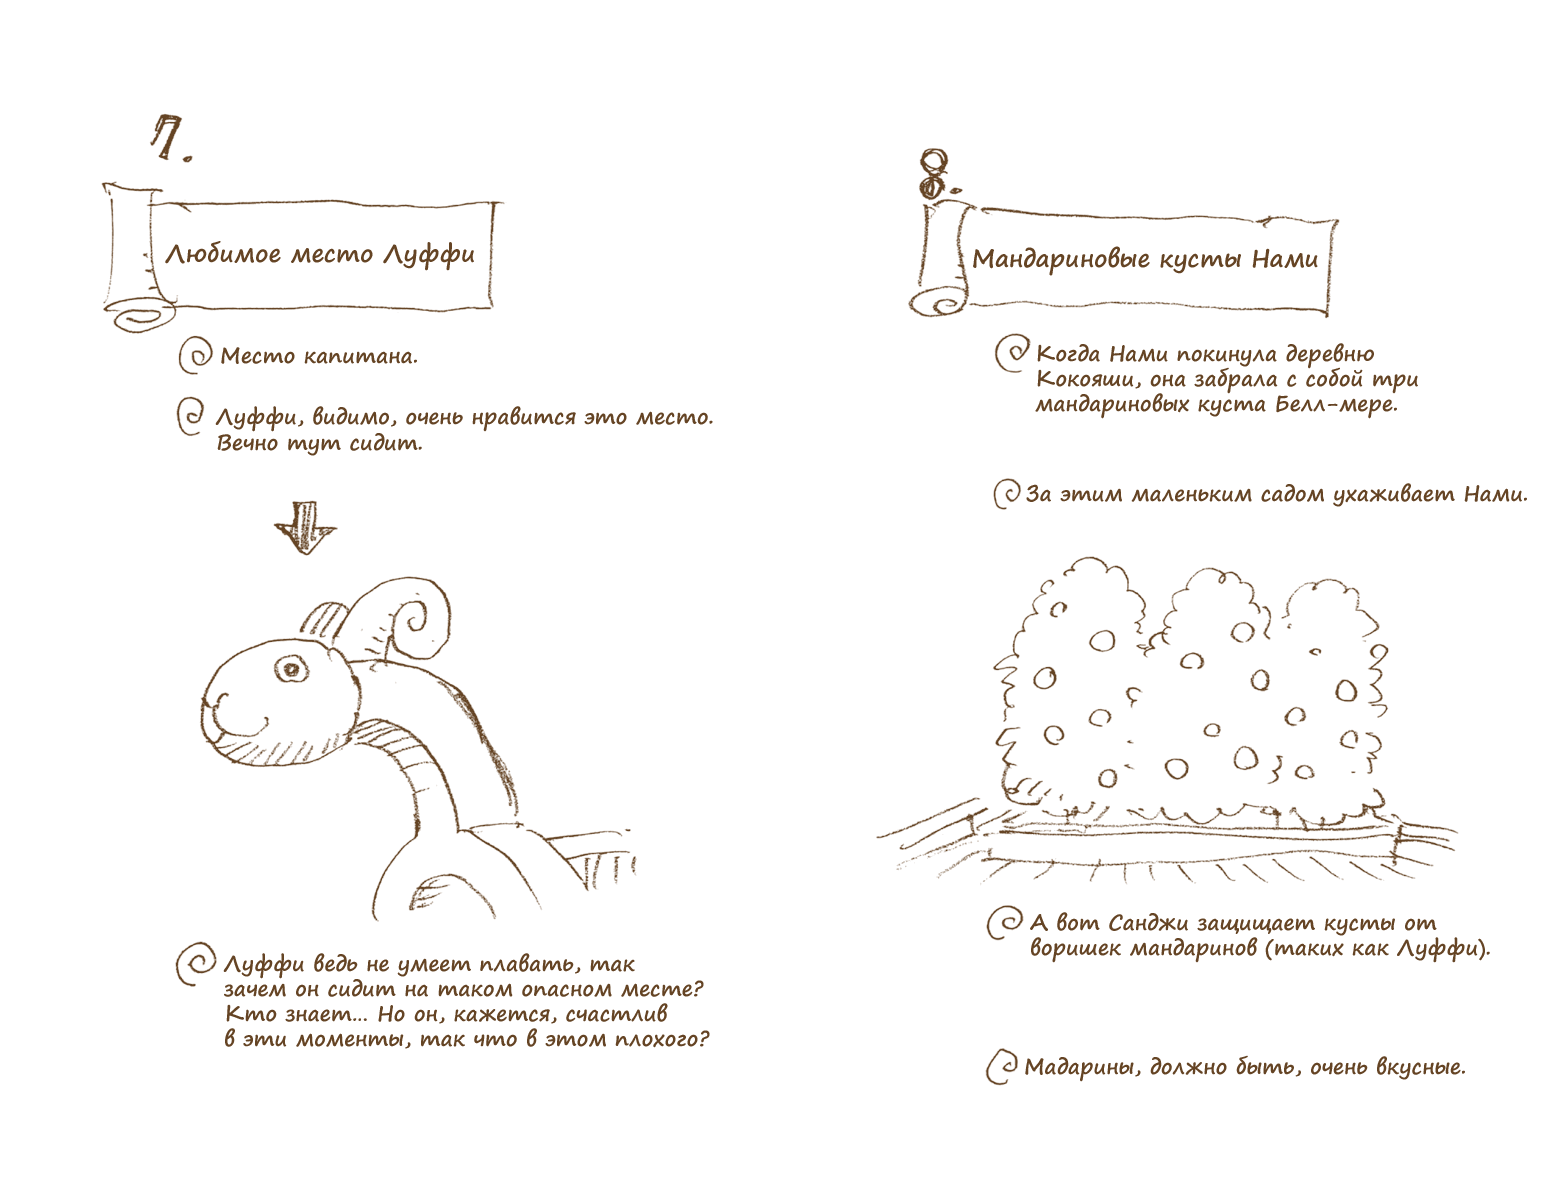 7.
Любимое место Луффи
Место капитана.
Луффи, видимо, очень нравится это место.
Вечно тут сидит.
Луффи ведь не умеет плавать, так
зачем он сидит на таком опасном месте?
Кто знает... Но он, кажется, счастлив
в эти моменты, так что в этом плохого?
8.
Мандариновые кусты Нами
Когда Нами покинула деревню
Кокояши, она забрала с собой три
мандариновых куста Белл-мере.
За этим маленьким садом ухаживает Нами.
А вот Санджи защищает кусты от
воришек мандаринов (таких как Луффи).
Мадарины, должно быть, очень вкусные.